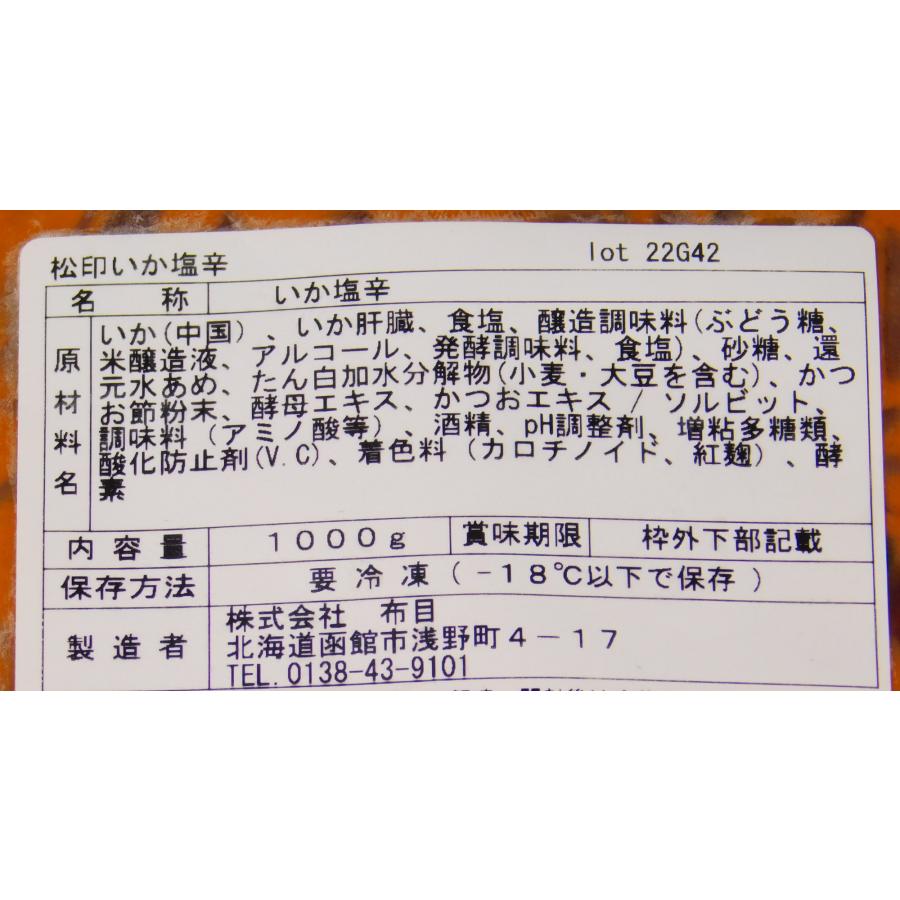 松印いか塩辛 lot 22G42
名 称 いか塩辛
原材料名
いか(中国)、いか肝臓、食塩、醸造調味料(ぶどう糖、
米醸造液、アルコール、発酵調味料、食塩)、砂糖、還
元水あめ、たん白加水分解物(小麦・大豆を含む)、かつ
お節粉末、酵母エキス、かつおエキス / ソルビット、
調味料(アミノ酸等)、酒精、pH調整剤、増粘多糖類、
酸化防止剤(V.C)、着色料(カロチノイド、紅麹)、酵
素
内容量 1000g 賞味期限 枠外下部記載
保存方法 要冷凍(-18℃以下で保存)
製造者
株式会社 布目
北海道函館市浅野町4-17
TEL.0138-43-9101